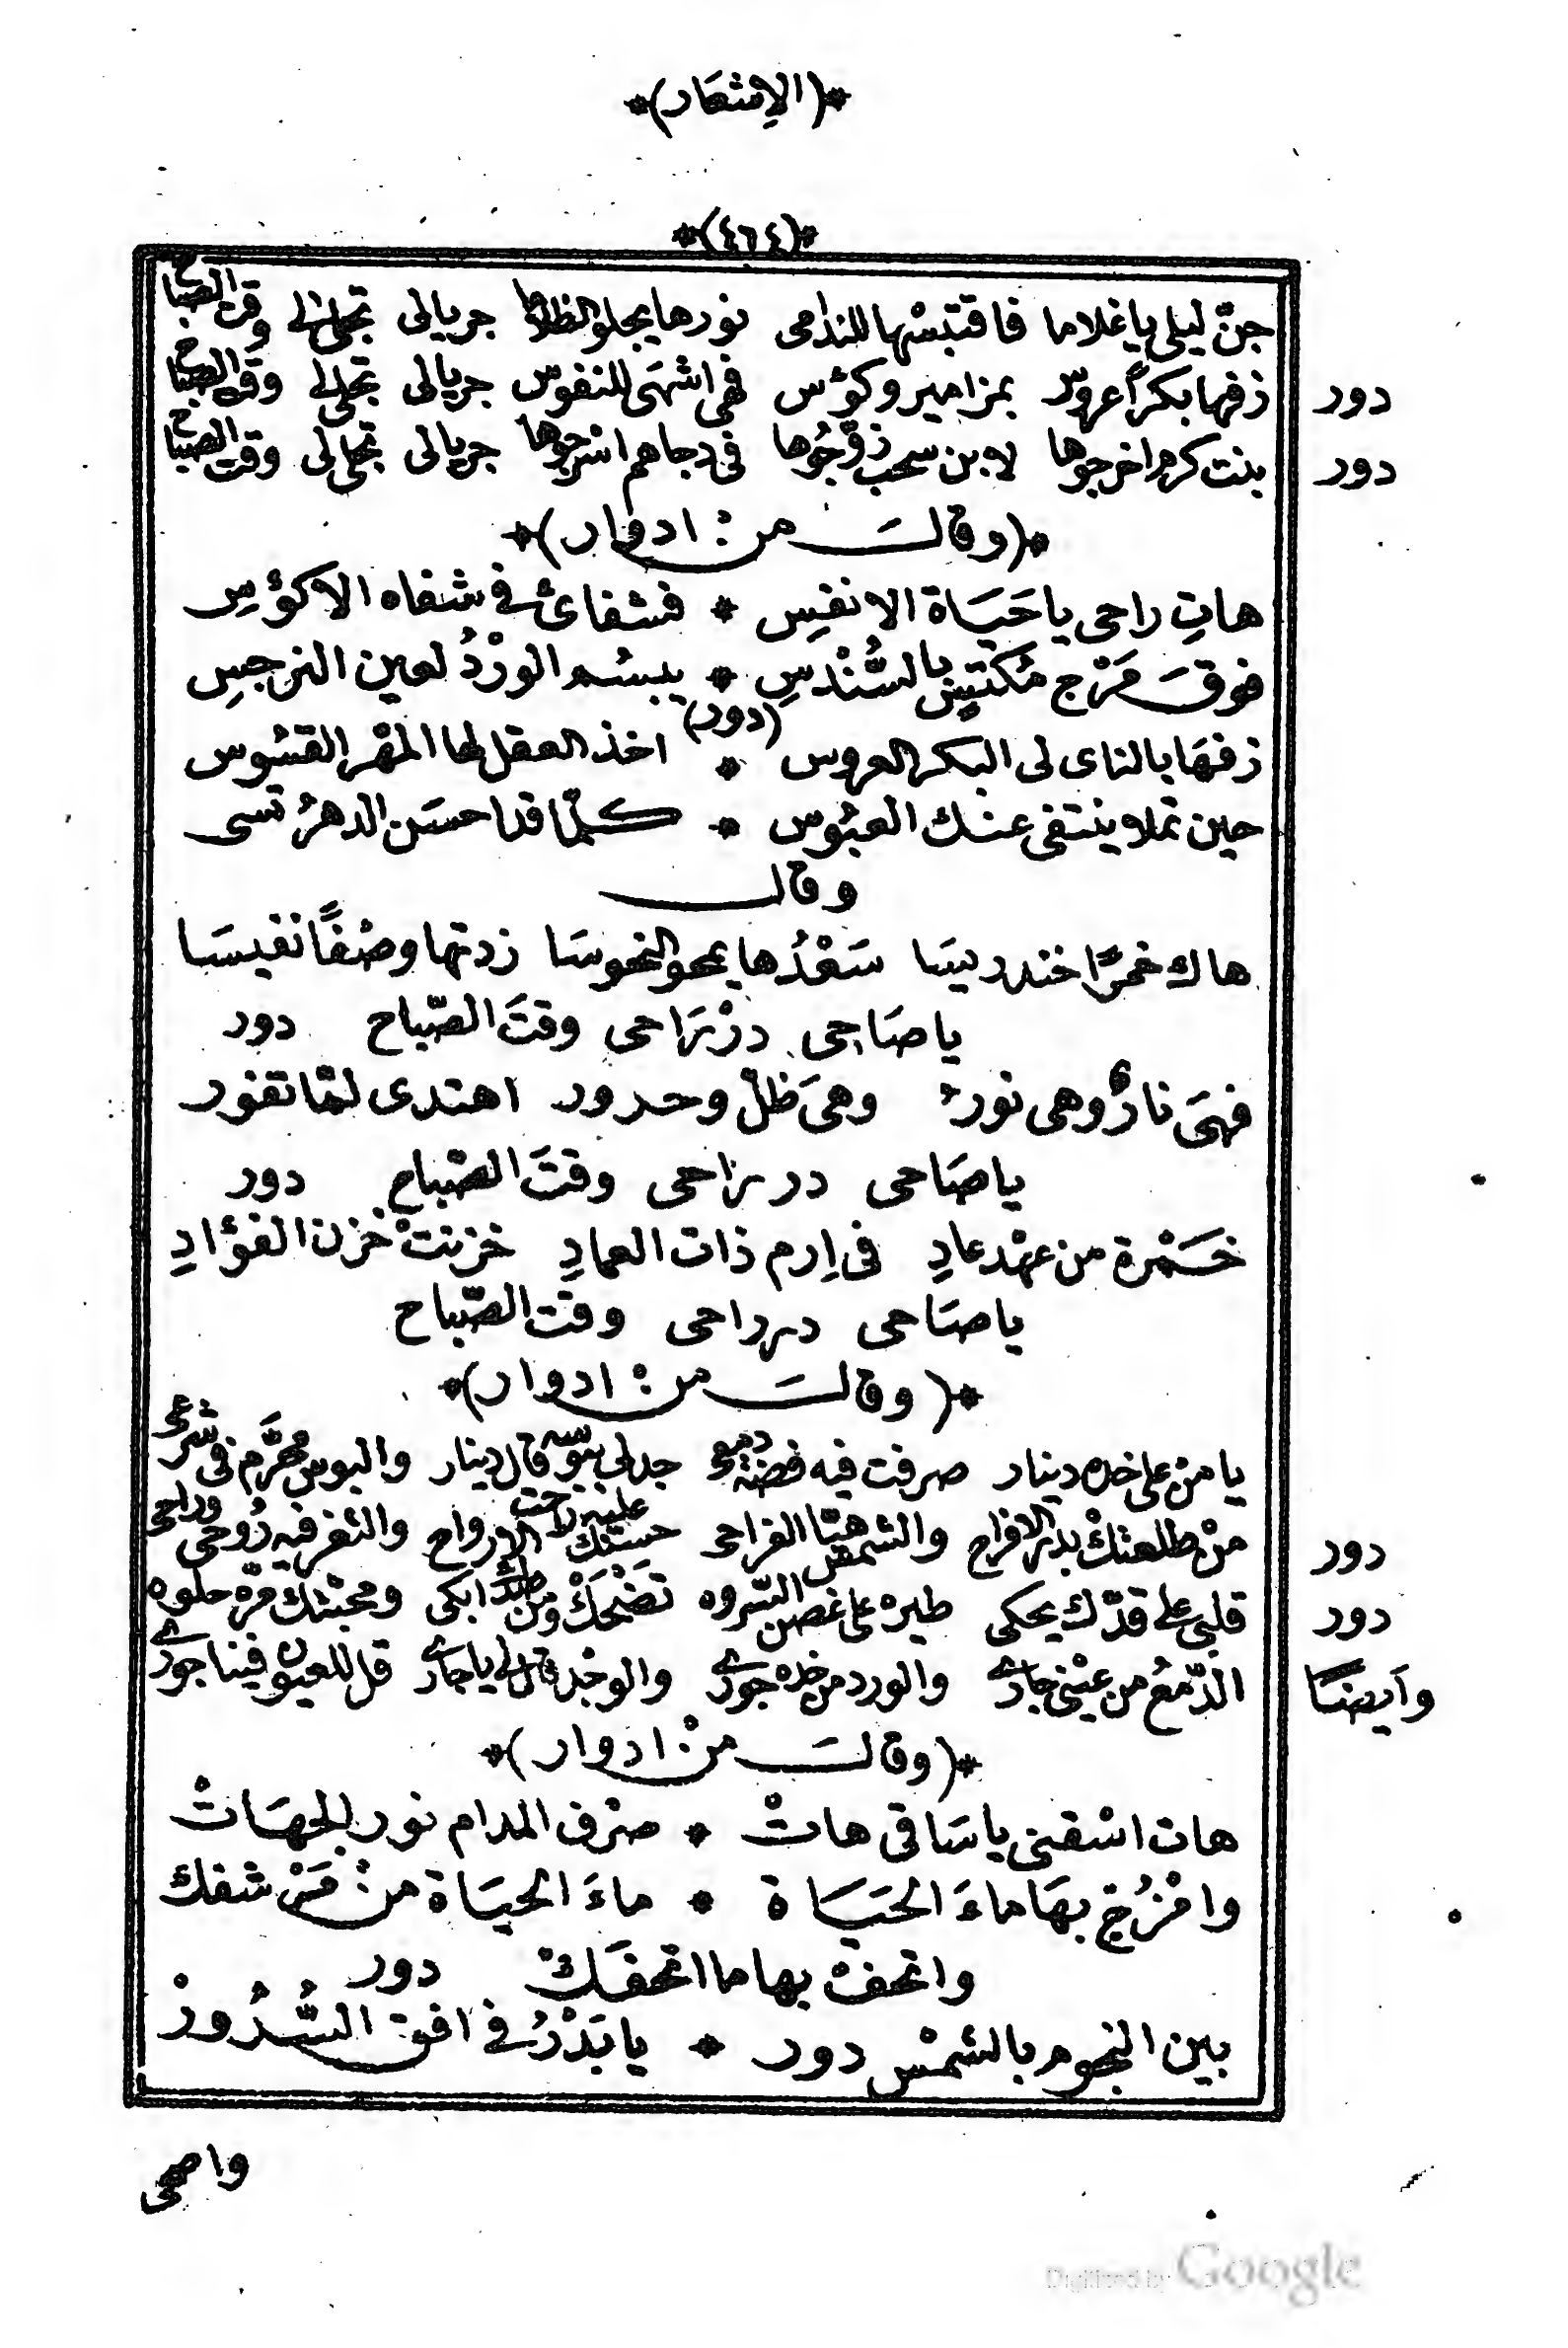 *(الاشعار)*
*(٤٦٤)*
جنّ ليلى ياغلاما فاقتبسْها للندامى نورها يجلو الظلاما جريالى تجلى لى وقت الصباح
دور زفها بكراً عروسْ بمزامير وكؤس فهى اشهَى للنفوس جريالى تجلى لى وقت الصباح
دور بنت كرم اخرجوها لابن سحب زوّجُوها فى دجاهم اسرجوها جريالى تجلى لى وقت الصباح
*(وقالَ منْ ادوار)*
هاتِ راحى ياحَيَاة الانفسِ * فشفائ فى شفاه الاكؤسِ
فوقَ مَرْج مُكتسٍ بالسُّنْدسِ * يبسُم الورْدُ لعين النرجسِ
(دور)
زفهَا بالناى لى البكر العروس * اخذ العقل لها المهْر القسُوس
حين تملا ينتفى عنك العبُوس * كلّما قد احسَن الدهرُ تسى
وقال
هاك خمرًا خندريسَا سَعْدُها يمحو النحوسَا زدتها وصْفًا نفيسَا
ياصَاحِى درْ بَرَاحى وقتَ الصّباح دور
فهىَ نارٌ وهى نورٌ وهىَ ظلّ وحرور اهتدى لمّا تفور
ياصَاحى در براحى وقتَ الصْباح دور
خَمْرة من عهْد عادِ فى اِرم ذات العمادِ خزنتْ خزن الفؤادِ
ياصَاحى در براحى وقت الصّباح
*(وقالَ منْ ادوار)*
يا منْ على خده دينار صرفت فيه فضة دمعى جدلى ببوسه قال دينار والبوس محَرَّم فى شرعى
دور منْ طلعتكْ بدر الافراح والشمس هيّا الفراحى حسنك عليه راحت الارواح والثغر فيه رُوحى وراحى
دور قلبى على قدّك يحكى طيره على غصن السروه تضْحَكْ ومن صدك ابكى ومحبّتك مرّه حلوه
وايضًا الدّمعُ من عيْنى جارى والورد من خده جورى والوجْد قال لى ياجارى قل للعيون فينا جورى
*(وقالَ منْ ادوار)*
هات اسْقنى ياسَاقى هاتْ * صرْف المدام نور الجهَاتْ
وامْزُجْ بهَا ماءَ الحيَاة * ماءَ الحيَاة منْ مَرْشفك
واتحفْ بها ما اتحفَكْ دور
بين النجوم بالشمْس دور * يابَدْرُ فى افق السُّرُورْ
واضحى
Digitized by Google